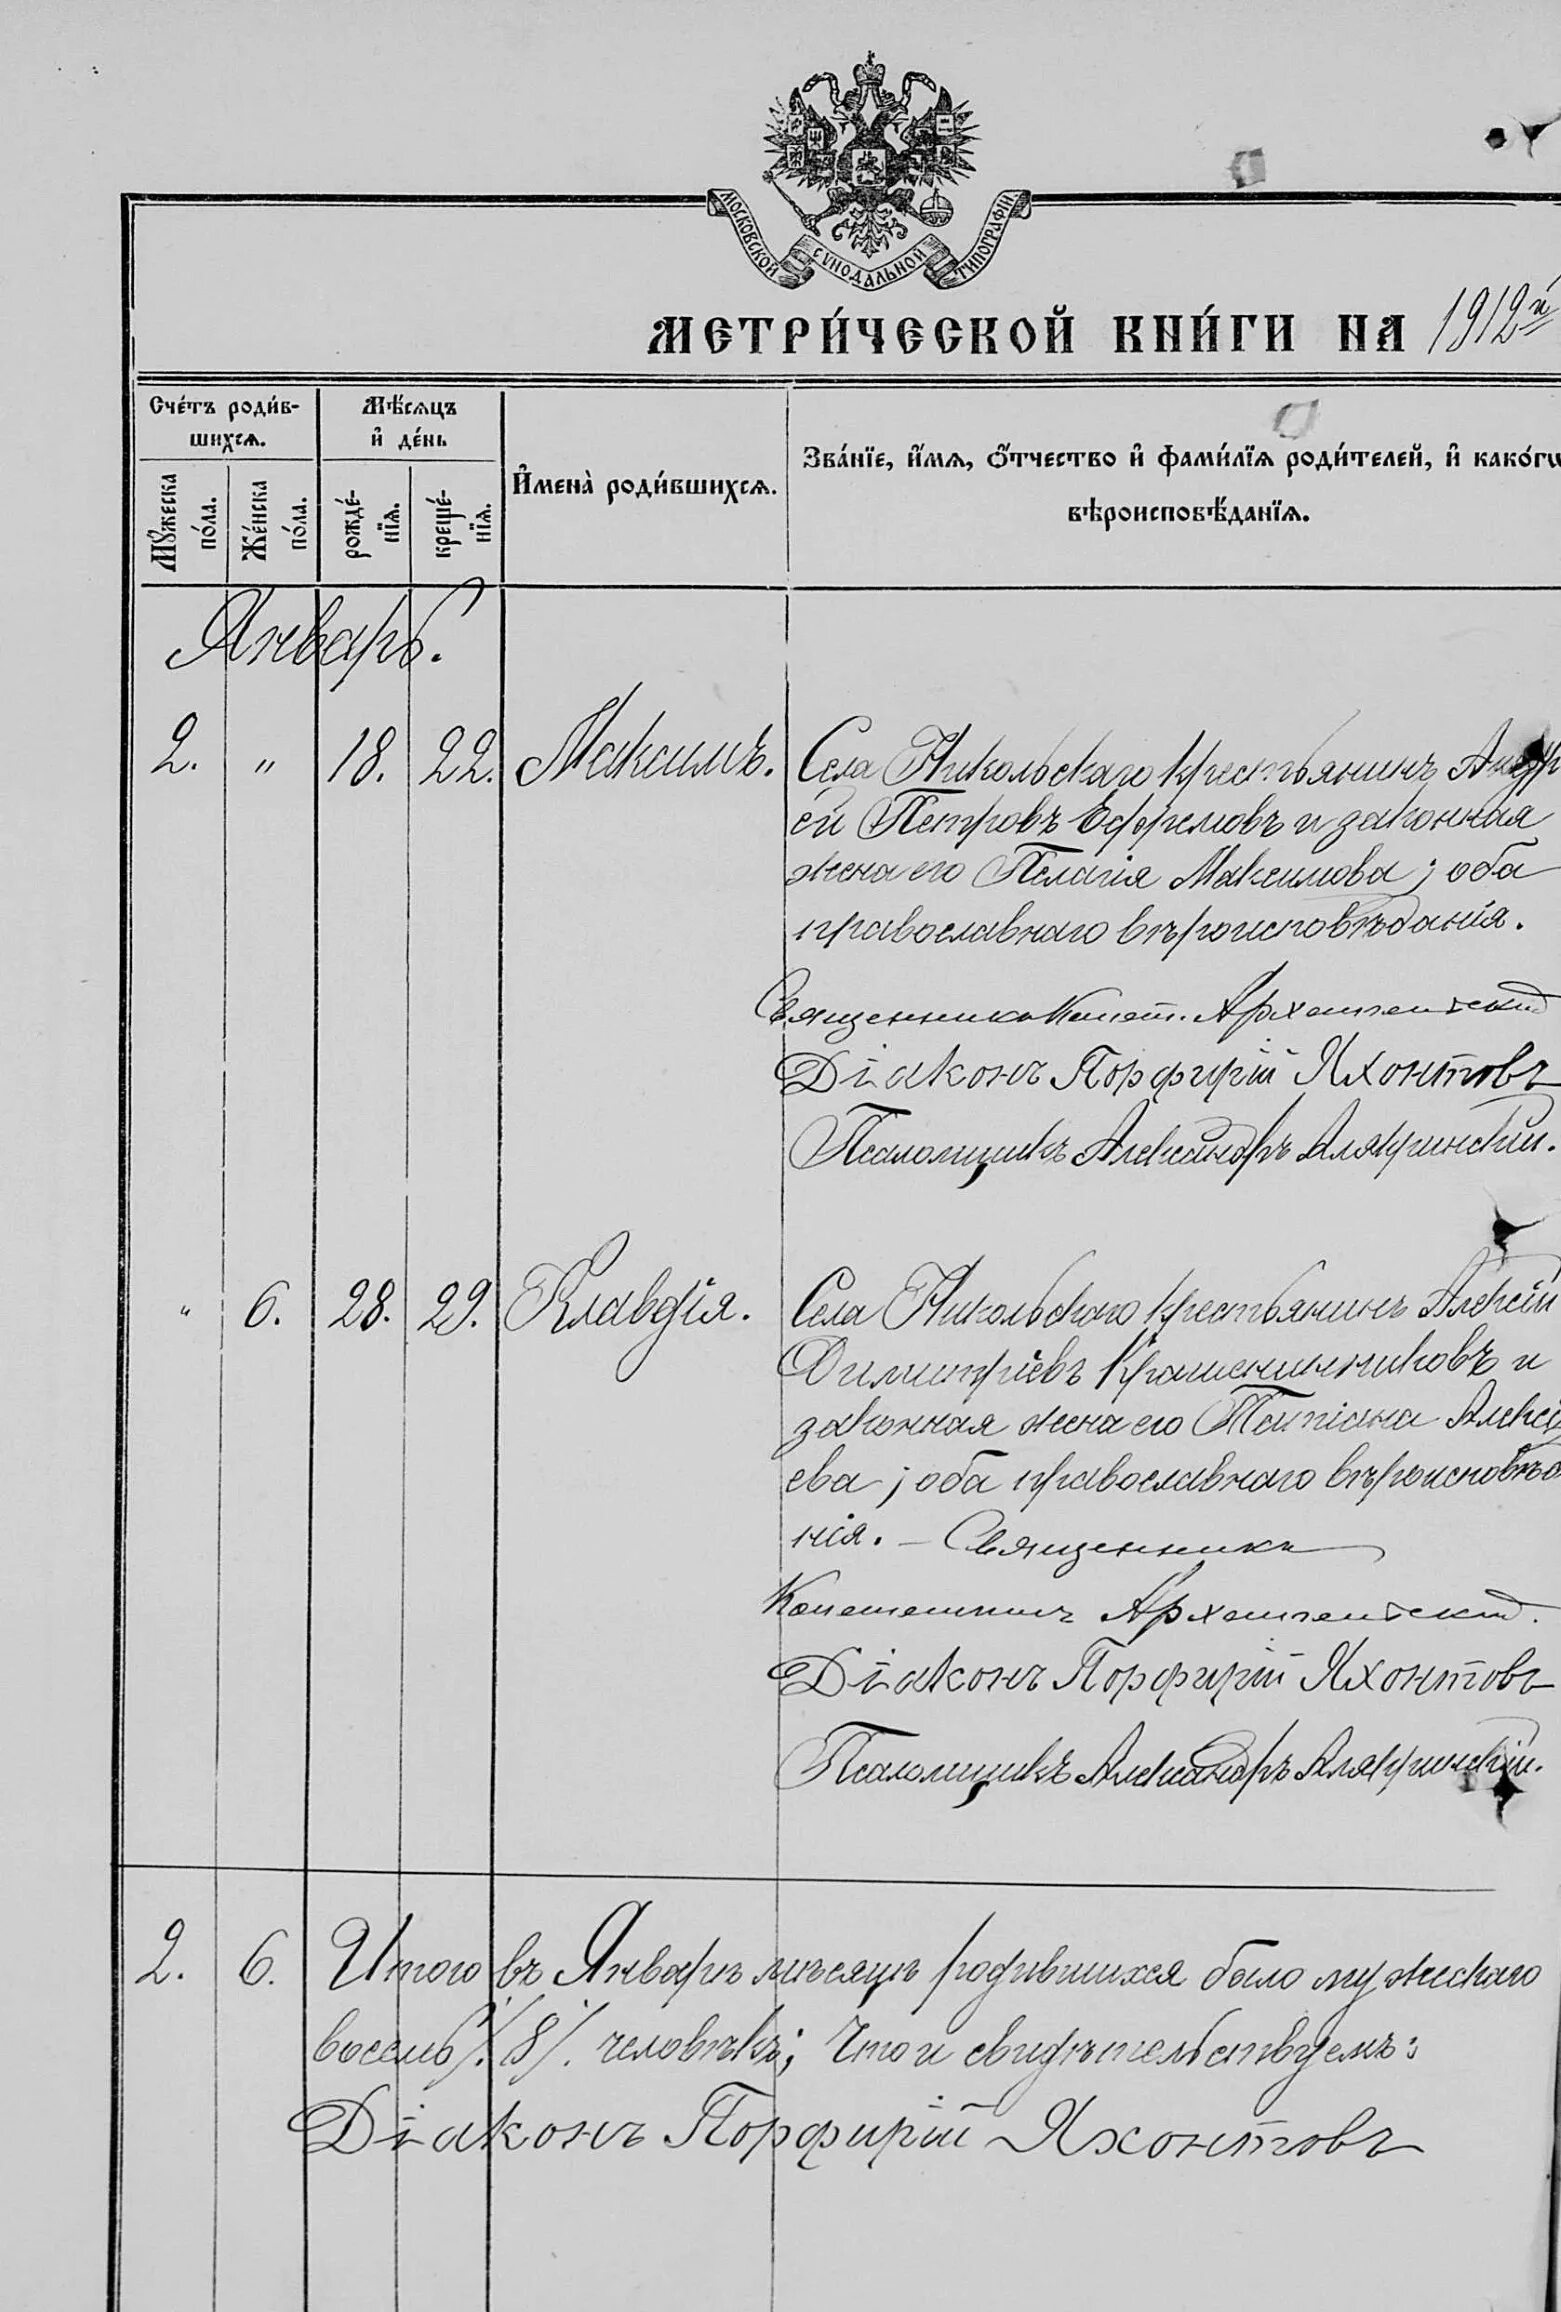 МОСКОВСКОЙ СѴНОДАЛЬНОЙ ТИПОГРАФІИ
МЕТРИ́ЧЕСКОЙ КНИ́ГИ НА 1912й
Сче́тъ роди́в-
шихсѧ.
Мѣ́сѧцъ
и҆ де́нь
И҆мена̀ роди́вшихсѧ.
Зва́нїе, и҆́мѧ, ѻ҆́тчество и҆ фами́лїѧ роди́телей, и҆ како́гѡ
вѣроисповѣ́данїѧ.
Мꙋ́жеска
по́ла.
Же́нска
по́ла.
рожде́-
нїѧ.
креще́-
нїѧ.
Январь.
2. " 18. 22. Максимъ. Села Никольскаго крестьянинъ Андр
ей Петровъ Ефремовъ и законная
жена его Пелагія Максимова; оба
православнаго вѣроисповѣданія.
Священникъ Конст. Архангельскій
Діаконъ Порфирій Яхонтовъ
Псаломщикъ Александръ Алякринскій.
" 6. 28. 29. Клавдія. Села Никольскаго крестьянинъ Алексій
Димитріевъ Крашенинниковъ и
законная жена его Татіана Алексѣ
ева; оба православнаго вѣроисповѣд
нія. – Священникъ
Константинъ Архангельскій.
Діаконъ Порфирій Яхонтовъ
Псаломщикъ Александръ Алякринскій.
2. 6. Итого въ Январѣ мѣсяцѣ родившихся было мужескаго
восемь /8/. человѣкъ; Что и свидѣтельствуемъ:
Діаконъ Порфирій Яхонтовъ